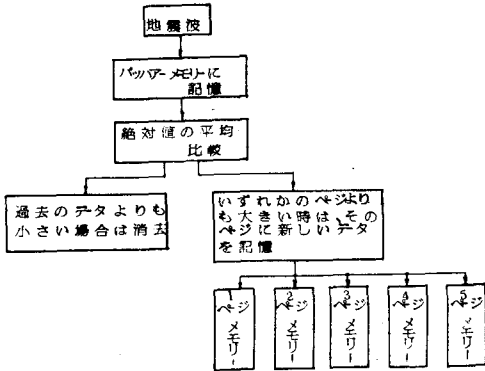 地震波
バッファーメモリーに
記憶
絶対値の平均
比較
過去のデータよりも
小さい場合は消去
いずれかのページより
も大きい時は、その
ページに新しいデータ
を記憶
1ページメモリー
2ページメモリー
3ページメモリー
4ページメモリー
5ページメモリー